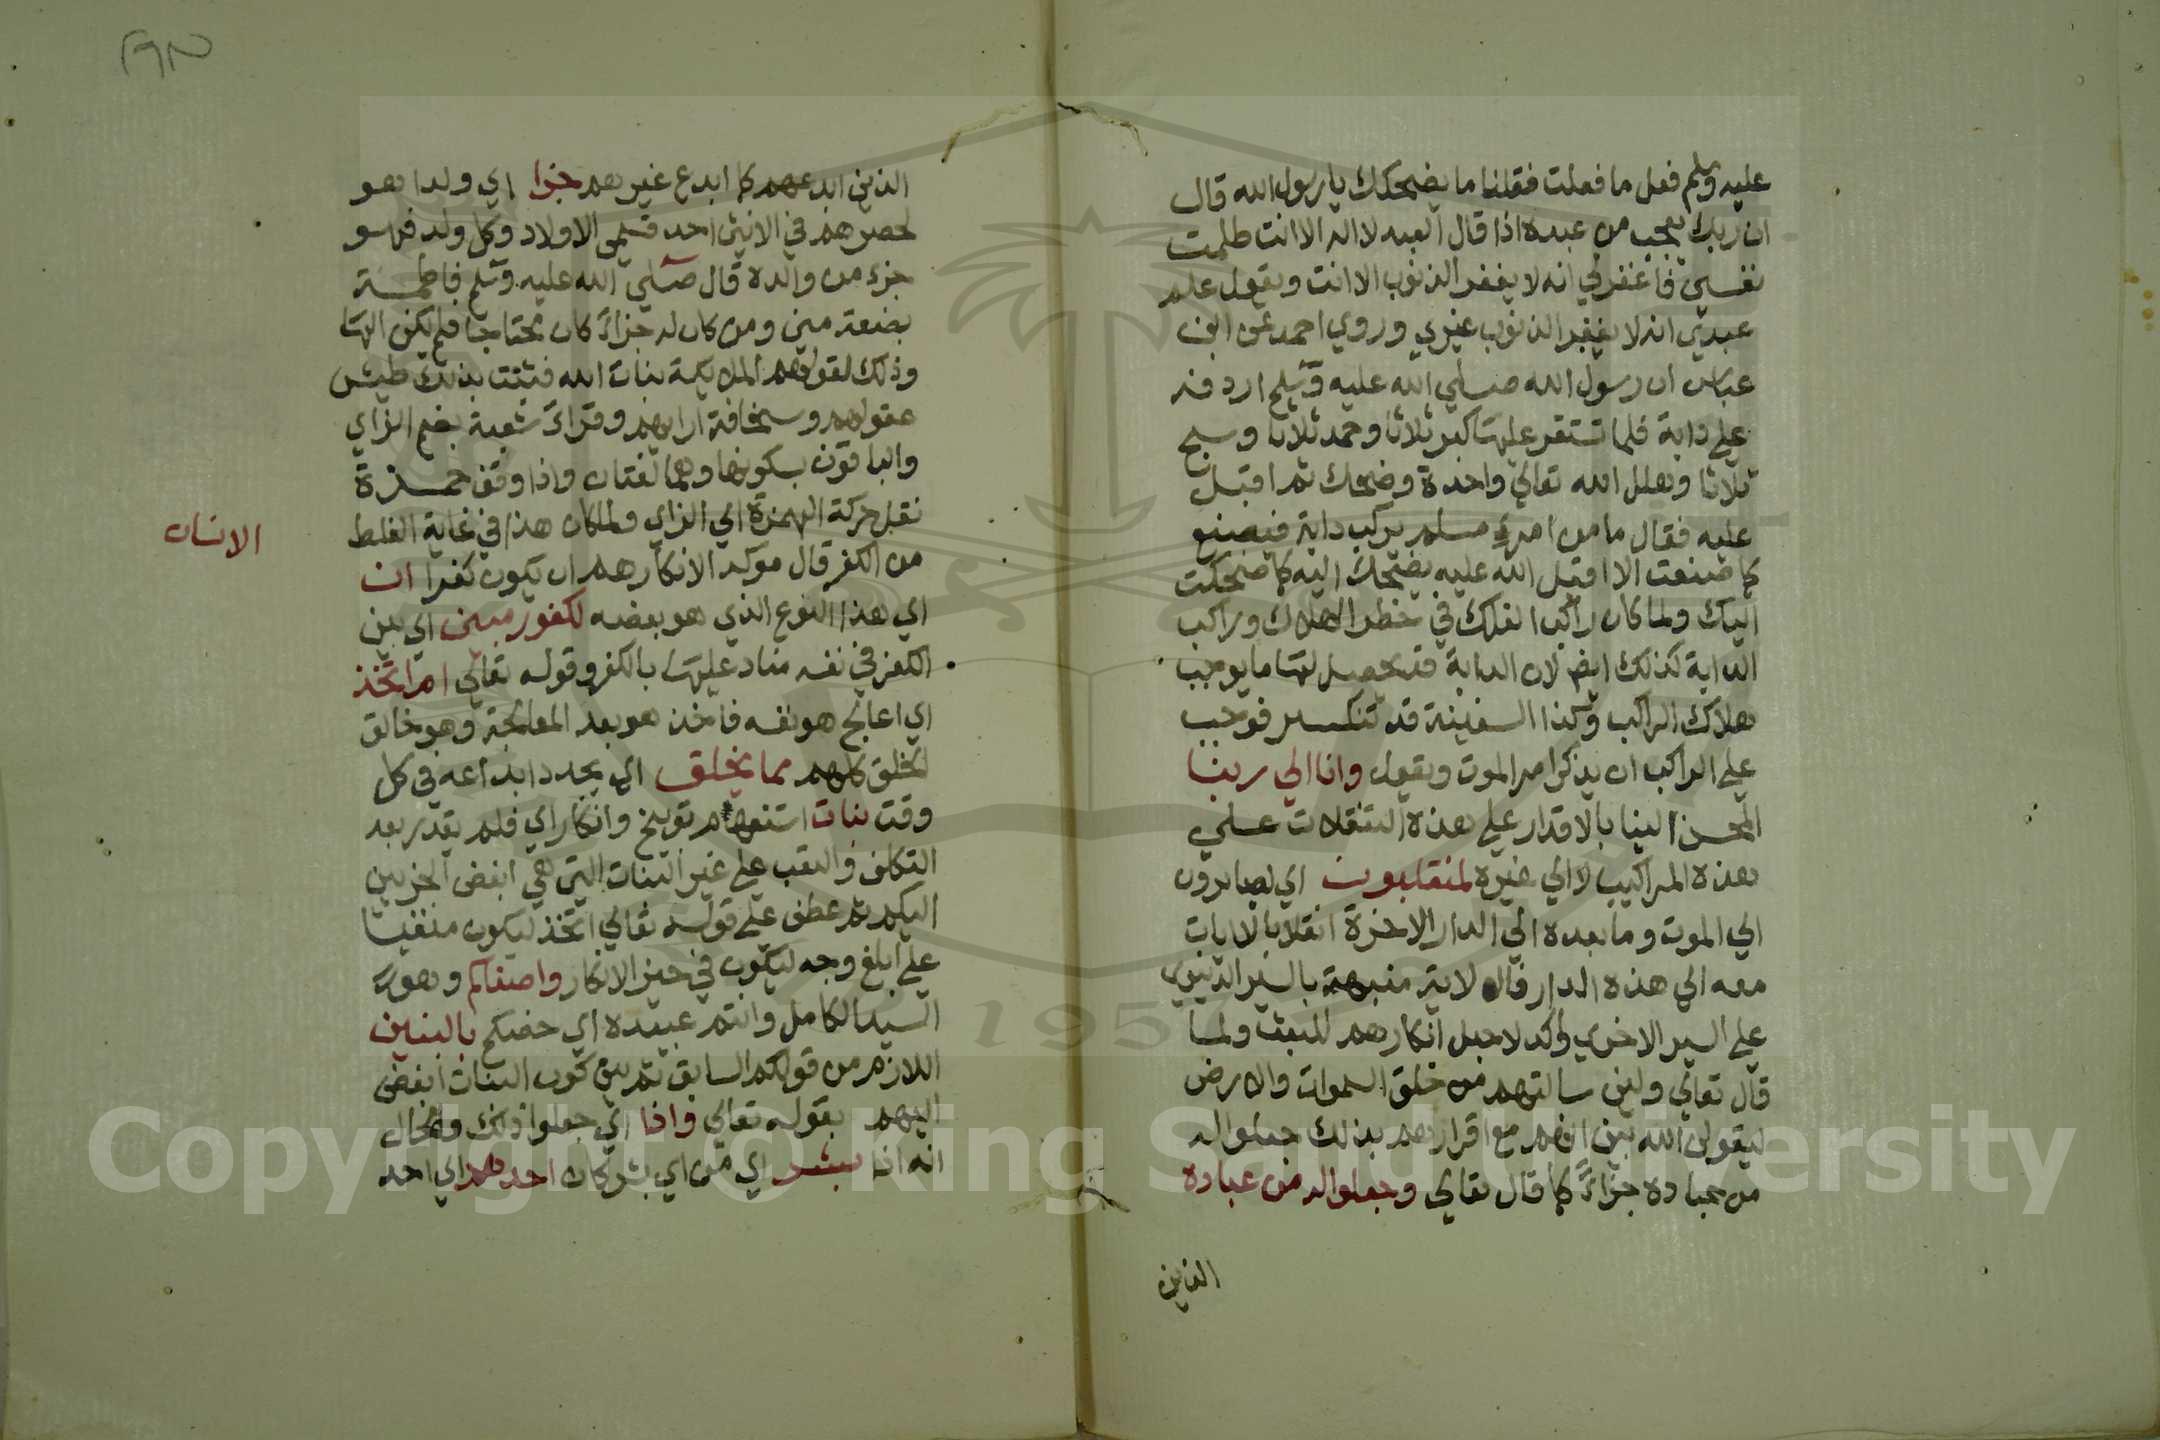 عليه وسلم فعل ما فعلت فقلنا ما يضحكك يا رسول الله قال
ان ربك يعجب من عبده اذا قال العبد لا اله الا انت ظلمت
نفسي فاغفر لي انه لا يغفر الذنوب الا انت ويقول علم
عبدي انه لا يغفر الذنوب غيري وروي احمد عن ابن
عباس ان رسول الله صلي الله عليه وسلم اردفه
علي دابة فلما استقر عليها كبر ثلاثا وحمد ثلاثا وسبح
ثلاثا وهلل الله تعالي واحدة وضحك ثم اقبل
عليه فقال ما من امرء مسلم يركب دابة فيصنع
كما صنعت الا اقبل الله عليه يضحك اليه كما ضحكت
اليك ولما كان راكب الفلك في خطر الهلاك وراكب
الدابة كذلك ايض لان الدابة قد يحصل لها ما يوجب
هلاك الراكب وكذا السفينة قد تنكسر فوجب
علي الراكب ان يذكر امر الموت ويقول وانا الي ربنا
المحسن الينا بالاقدار علي هذه التنقلات علي
هذه المراكيب لا الي غيره لمنقلبون اي لصايرون
الي الموت وما بعده الي الدار الاخرة انقلابا لا اياب
معه الي هذه الدار فالاية منبهة بالسير الدنيوي
علي السير الاخروي واكد لاجل انكارهم للبعث ولما
قال تعالي ولين سالتهم من خلق السموات والارض
ليقولن الله بين انهم مع اقرارهم بذلك جعلوا له
من عباده جزاءً كما قال تعالي وجعلوا له من عباده
الذين
٢٩٣
الذين ابدعهم كما ابدع غيرهم جزا اي ولدا هو
لحصرهم في الانثى احد قسمي الاولاد وكل ولد فهو
جزء من والده قال صلي الله عليه وسلم فاطمة
بضعة مني ومن كان له جزاءً كان محتاجا فلم يكن الها
وذلك لقولهم الملايكة بنات الله فثبت بذلك طيش
عقولهم وسخافة ارايهم وقراءَ شعبة بضم الزاي
والباقون بسكونها وهما لغتان واذا وقف حمزة
نقل حركة الهمزة الي الزاي ولما كان هذا في غاية الغلط
من الكفر قال موكد الانكارهم ان يكون كفرا ان
الانسان
اي هذا النوع الذي هو بعضه لكفور مبين اي بين
الكفر في نفسه مناد عليها بالكفر وقوله تعالي ام اتخذ
اي اعالج هو نفسه فاخذ هو بعد المعالجة وهو خالق
الخلق كلهم مما يخلق اي يجدد ابداعه في كل
وقت بنات استفهام توبيخ وانكار اي فلم يقدر بعد
التكلف والتعب علي غير البنات التي هي ابغض الجزيين
اليكم ثم عطف علي قوله تعالي اتخذ ليكون منفيا
علي ابلغ وجه ليكون في حيز الانكار واصفاكم وهو
السيد الكامل وانتم عبيده اي خصكم بالبنين
اللازم من قولكم السابق ثم بين كون البنات ابغض
اليهم بقوله تعالي واذا اي جعلوا ذلك والحال
انه اذا بشر اي من اي بشر كان احدهم اي احد
Copyright © King Saud University
1957